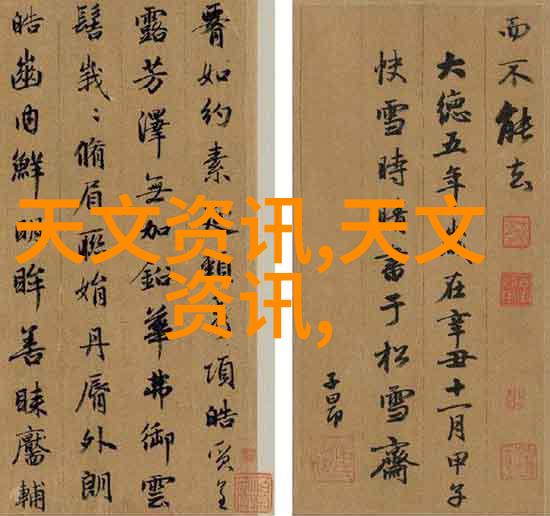 如約素頸項皓質呈
露芳澤無加鉛華弗御雲
髻峩〻脩眉聯娟丹脣外朗
皓齒内鮮明眸善睞靨輔
而不能去
大德五年在辛丑十一月甲子
快雪時晴書于松雪齋
子昂
天文资讯,天文
资讯,